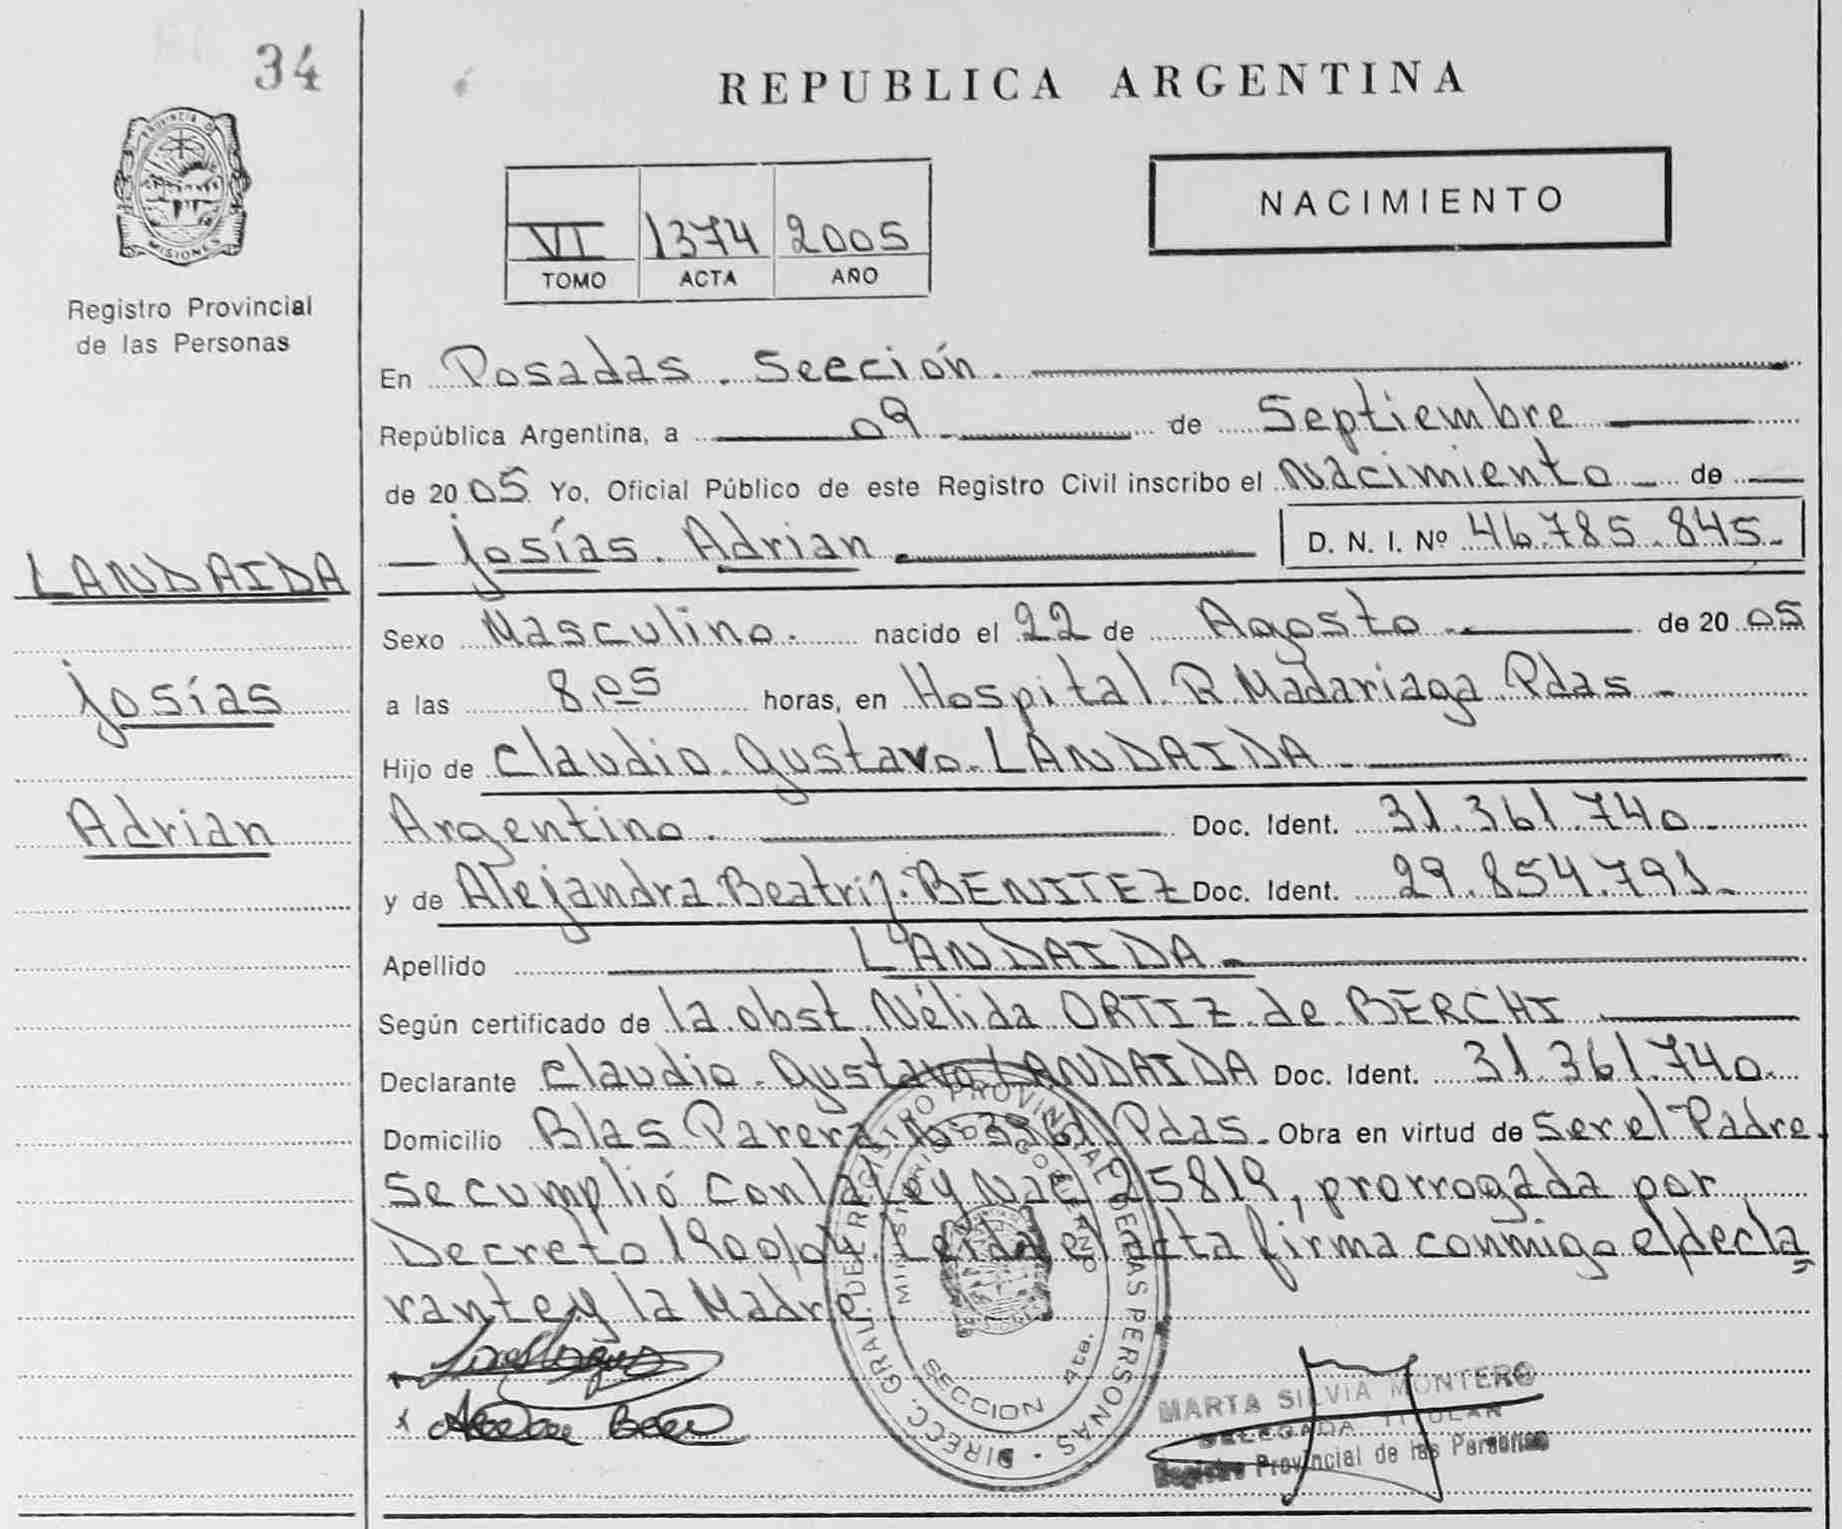 34
REPUBLICA ARGENTINA
PROVINCIA DE
MISIONES
Registro Provincial
de las Personas
VI 1374 2005
TOMO ACTA AÑO
NACIMIENTO
En Posadas. Sección.
República Argentina, a 09 de Septiembre
de 2005 Yo, Oficial Público de este Registro Civil inscribo el Nacimiento de
Josías. Adrian. D. N. I. Nº 46.785.845.
LANDAIDA
Josías
Adrian
Sexo Masculino. nacido el 22 de Agosto de 2005
a las 8,05 horas, en Hospital R. Madariaga Pdas
Hijo de Claudio Gustavo LANDAIDA
Argentino. Doc. Ident. 31.361.740
y de Alejandra Beatriz BENITEZ Doc. Ident. 29.854.791
Apellido LANDAIDA
Según certificado de la obst Nélida ORTIZ de BERCHI
Declarante Claudio Gustavo LANDAIDA Doc. Ident. 31.361.740.
Domicilio Blas Parera Pdas. Obra en virtud de Ser el Padre
Se cumplió con la Ley Nac 25819, prorrogada por
Decreto 1900/04. Leída el acta firma conmigo el decla
rante y la Madre.
DIRECC. GRAL. DE REGISTRO PROVINCIAL DE LAS PERSONAS
MINISTERIO DE GOBIERNO
SECCION 4ta.
MARTA SILVIA MONTERO
DELEGADA TITULAR
Registro Provincial de las Personas